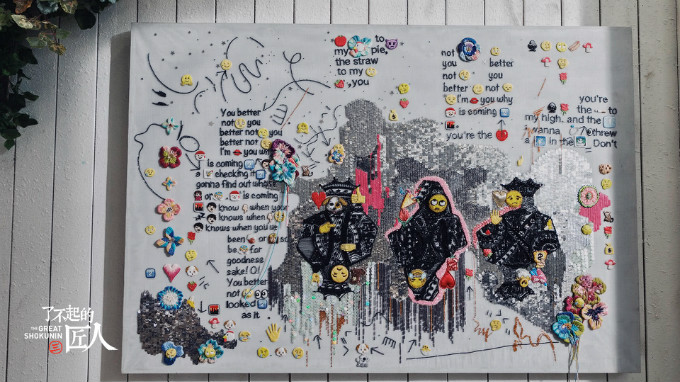 to my
my ple,
the straw
to my
, you
not
you better
not you
better not
I'm you why
is coming
you're the
you're
the to
my high. and the
wanna threw
a in the Don't
You better
not you
better not you
better not
I'm you why
is coming
a checking it
gonna find out whose
or . is coming
know when your
knows when
knows when you've
been or so
be for
goodness
sake! O!
You better
not
looked
as it
了不起的
匠人
THE GREAT
SHOKUNIN
三